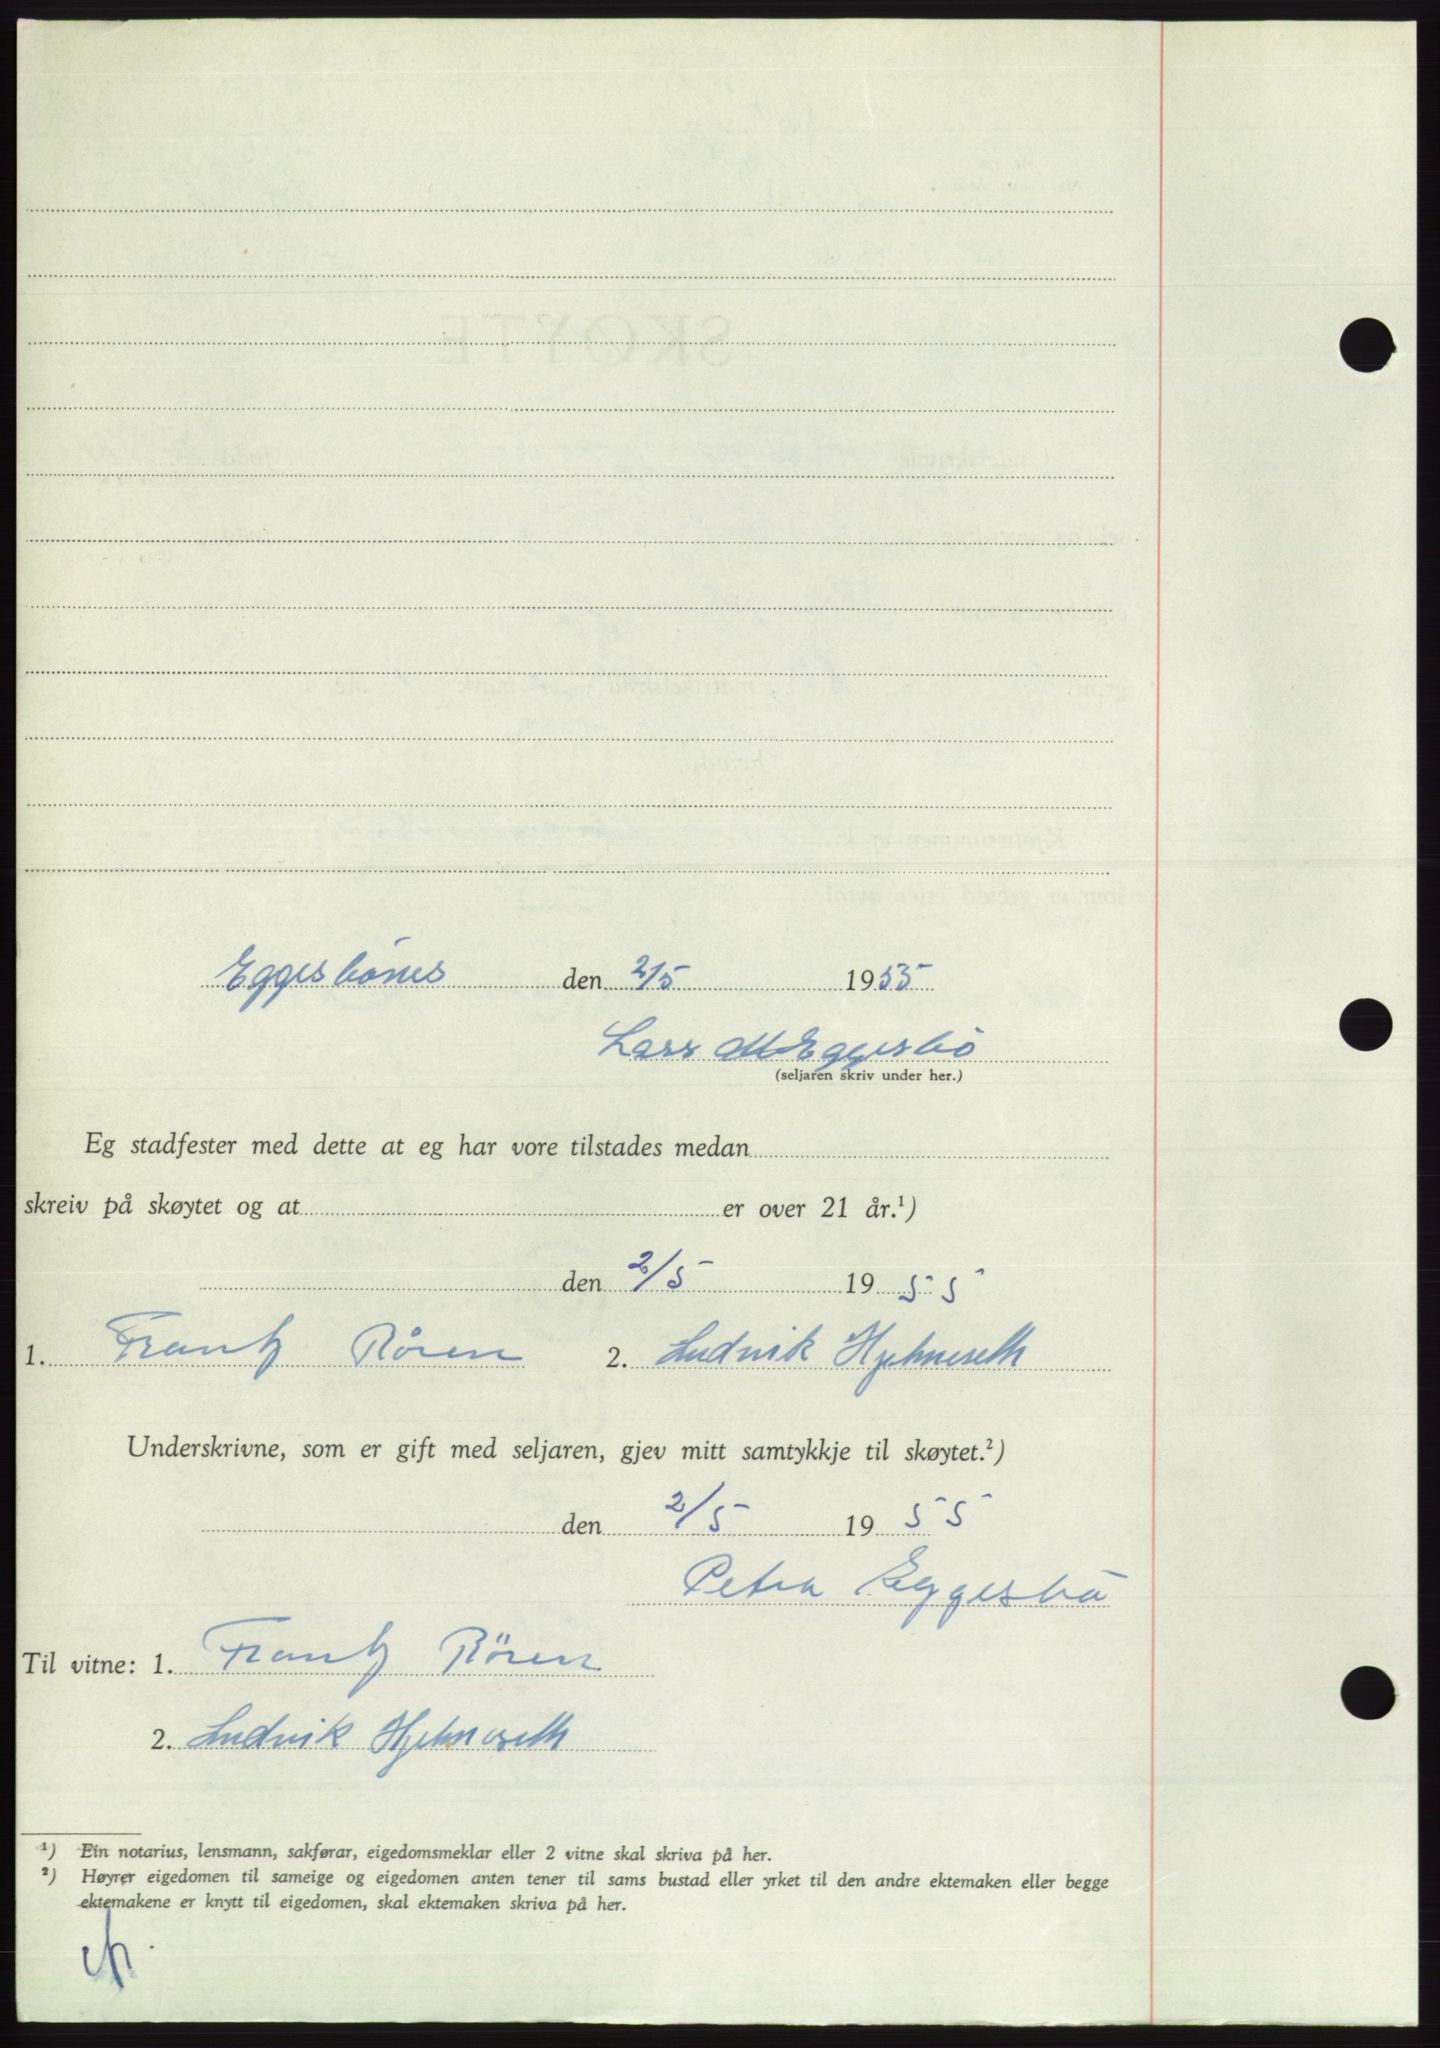 Eggesbönes den 2/5 1955
Lars M Eggesbö
(seljaren skriv under her.)
Eg stadfester med dette at eg har vore tilstades medan
skreiv på skøytet og at er over 21 år.¹)
den 2/5 19 55
1. Frantz Rören 2. Ludvik Hjelmeseth
Underskrivne, som er gift med seljaren, gjev mitt samtykkje til skøytet.²)
den 2/5 19 55
Petra Eggesbö
Til vitne: 1. Frantz Rören
2. Ludvik Hjelmeseth
¹) Ein notarius, lensmann, sakførar, eigedomsmeklar eller 2 vitne skal skriva på her.
²) Høyrer eigedomen til sameige og eigedomen anten tener til sams bustad eller yrket til den andre ektemaken eller begge
ektemakene er knytt til eigedomen, skal ektemaken skriva på her.